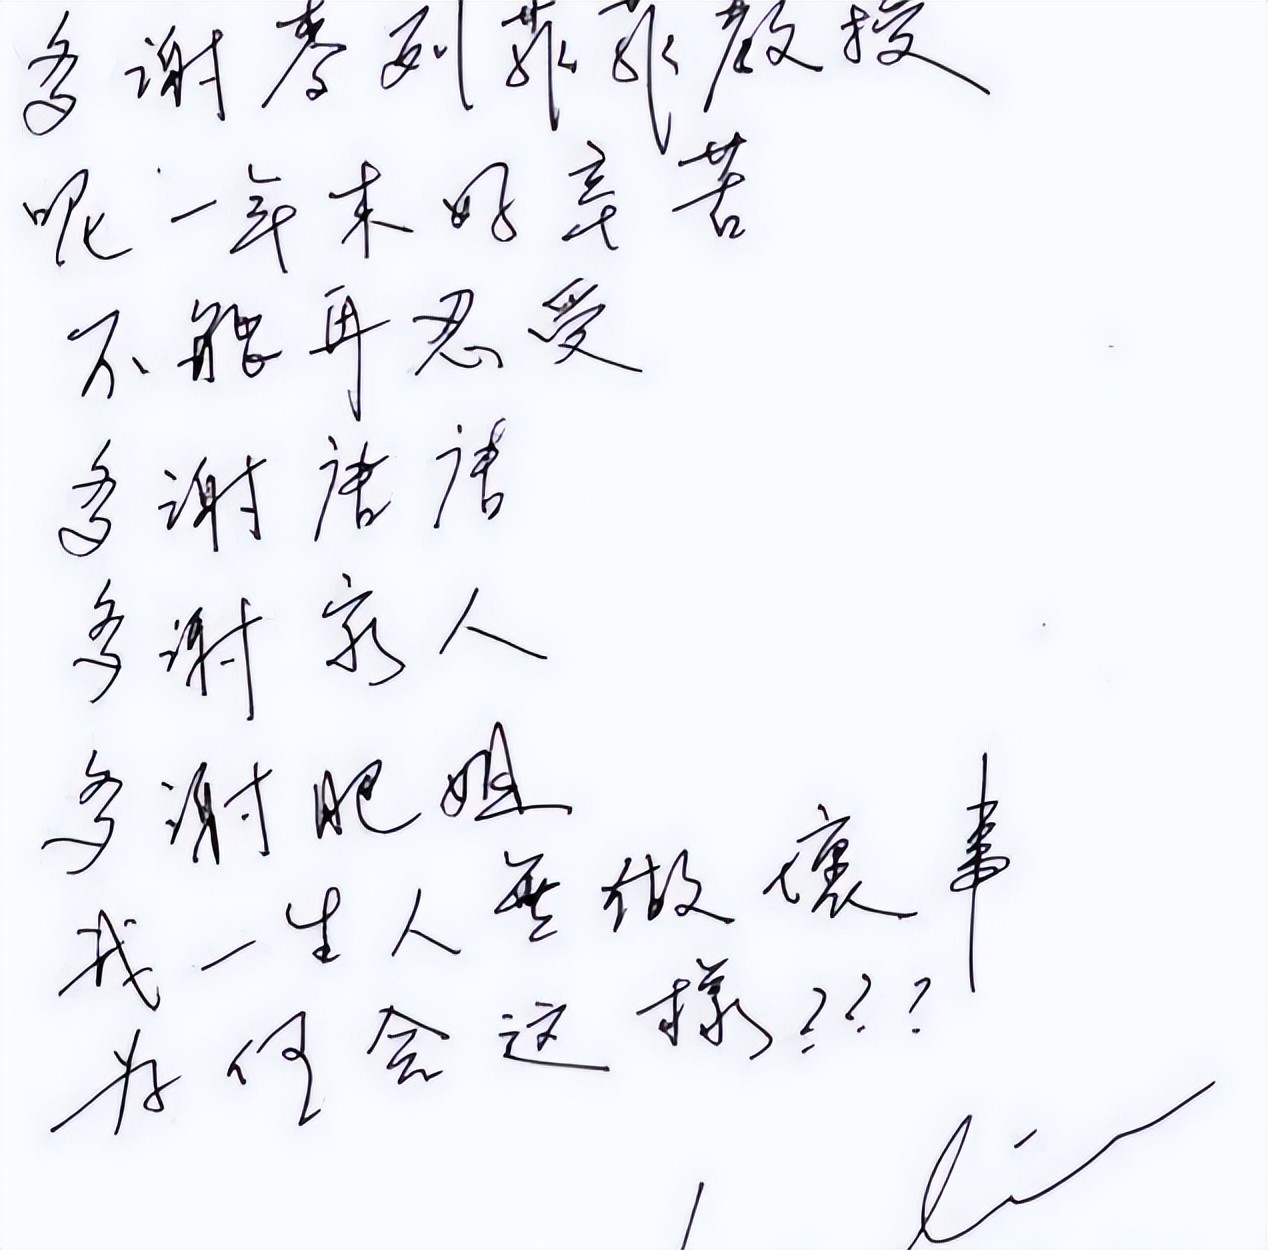 多谢麥列菲菲教授
呢一年来好辛苦
不能再忍受
多谢唐唐
多谢家人
多谢肥姐
我一生人無做壞事
为何会这樣???